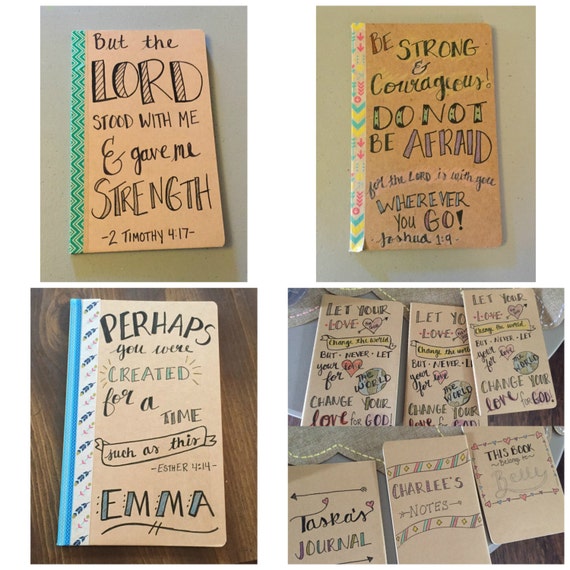 But the
LORD
STOOD WITH ME
& gave me
STRENGTH
-2 TIMOTHY 4:17-
BE STRONG
&
Courageous!
DO NOT
BE AFRAID
for the LORD is with you
WHEREVER
YOU GO!
Joshua 1:9-
PERHAPS
you were
CREATED
for a
TIME
such as this
-ESTHER 4:14-
EMMA
LET YOUR
LOVE
Change the world
BUT NEVER LET
your
for
THE WORLD
CHANGE YOUR
love for GOD!
LET YOUR
LOVE
Change the world
BUT NEVER LET
your love
for
THE WORLD
CHANGE YOUR
love for GOD!
LET YOUR
LOVE
Change the world
BUT NEVER LET
your love
for
THE WORLD
CHANGE YOUR
love for GOD!
JOURNAL
CHARLEE'S
NOTES
THIS BOOK
Belongs to